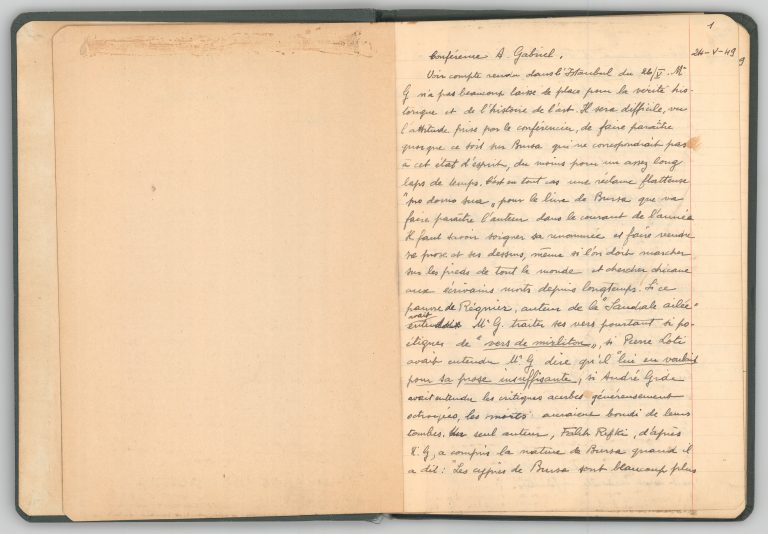 1
24-V-49
9
Conférence A. Gabriel.
Voir compte rendu dans l'Istanbul du 24/V. Mr
G n'a pas beaucoup laissé de place pour la vérité his-
torique et de l'histoire de l'art. Il sera difficile, vu
l'attitude prise par le conférencier, de faire paraître
quoique ce soit sur Bursa qui ne correspondrait pas
à cet état d'esprit, du moins pour un assez long
laps de temps. C'est en tout cas une réclame flatteuse
"pro domo sua" pour le livre de Bursa que va
faire paraître l'auteur dans le courant de l'année
Il faut savoir soigner sa renommée et faire vendre
sa prose et ses dessins, même si l'on doit marcher
sur les pieds de tout le monde et chercher chicane
aux écrivains morts depuis longtemps. Si ce
pauvre de Régnier, auteur de la "Sandale ailée"
avait
entendu Mr G. traiter ses vers pourtant si po-
étiques de "vers de mirliton", si Pierre Loti
avait entendu Mr G. dire qu'il "lui en voulait
pour sa prose insuffisante, si André Gide
avait entendu les critiques acerbes généreusement
octroyées, les morts auraient bondi de leurs
tombes. Un seul auteur, Falih Rifki, d'après
G, a compris la nature de Bursa quand il
a dit: "Les cyprès de Bursa sont beaucoup plus